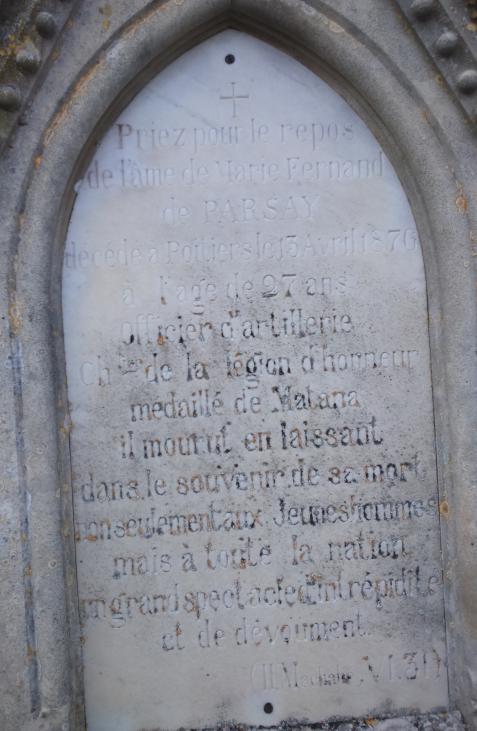 Priez pour le repos
de l'âme de Marie Fernand
de PARSAY
décédé à Poitiers le 13 Avril 1876
à l'age de 27 ans
Officier d'artillerie
Ch.lier de la légion d'honneur
médaillé de Matana
il mourut en laissant
dans le souvenir de sa mort
non seulement aux Jeunes hommes
mais à toute la nation
un grand spectacle d'intrépidité
et de dévoument.
(II Machab. VI.31)